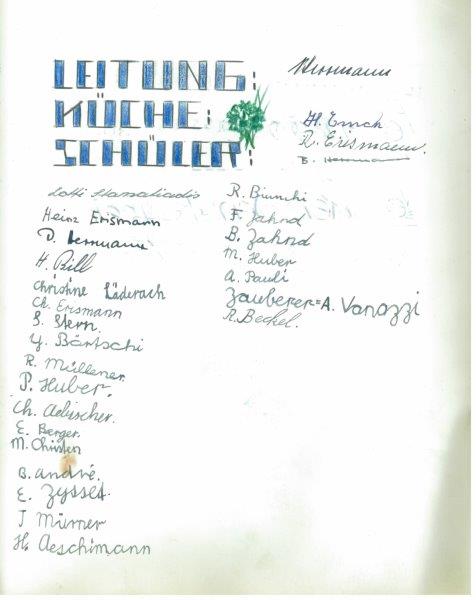 LEITUNG:
Herrmann
KÜCHE:
H. Emch
R. Erismann.
SCHÜLER:
B. Herrmann
Lotti Hamaliadis
Heinz Erismann
D. Herrmann
H. Bill
Christine Läderach
Ch. Erismann
S. Stern.
Y. Bärtschi
R. Müllener
P. Huber.
Ch. Aebischer.
E. Berger.
M. Christen
B. André.
E. Zysset.
J Mürner
H. Aeschimann
R. Bianchi
F. Zahnd
B. Zahnd
M. Huber
A. Pauli
Zauberer = A. Vanazzi
R. Beckel.